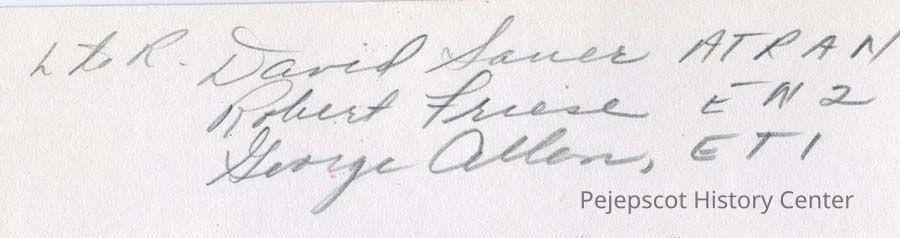 L to R. David Sauer ATRAN
Robert Friese EN2
George Allen, ET1
Pejepscot History Center